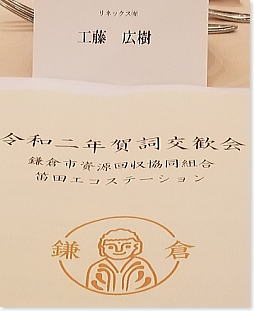 リネックス㈱
工藤 広樹
令和二年賀詞交歓会
鎌倉市資源回収協同組合
笛田エコステーション
鎌 倉